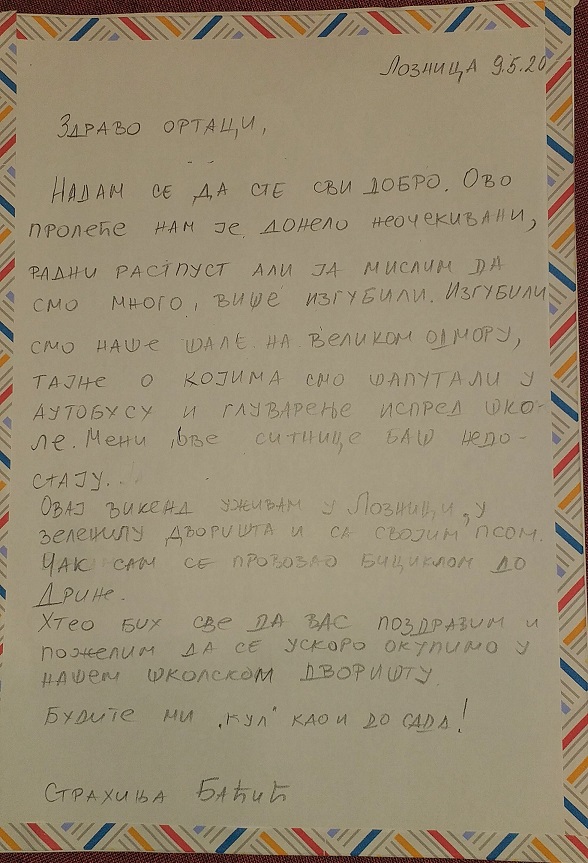 Лозница 9.5.20
Здраво ортаци,
Надам се да сте сви добро. Ово
пролеће нам је донело неочекивани,
радни распуст али ја мислим да
смо много, више изгубили. Изгубили
смо наше шале на великом одмору,
тајне о којима смо шапутали у
аутобусу и глуварење испред шко-
ле. Мени ове ситнице баш недо-
стају...
Овај викенд уживам у Лозници, у
зеленилу дворишта и са својим псом.
Чак сам се провозао бициклом до
Дрине.
Хтео бих све да вас поздравим и
пожелим да се ускоро окупимо у
нашем школском дворишту.
Будите ми „кул" као и до сада!
Страхиња Баћић